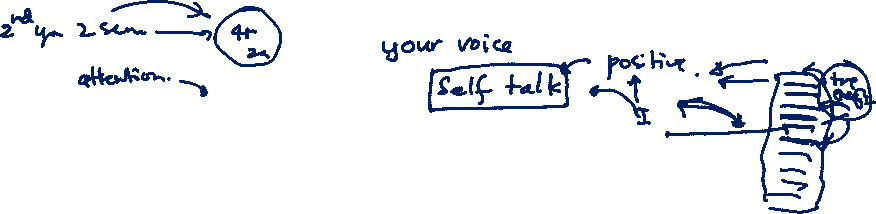 2nd yr 2 sem
attention.
your voice
Self talk
positive.
I